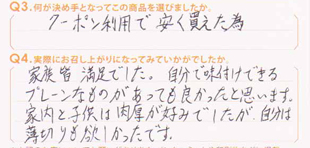 Q3.何が決め手となってこの商品を選びましたか。
クーポン利用で安く買えた為
Q4.実際にお召し上がりになってみていかがでしたか。
家族皆満足でした。自分で味付けできる
プレーンなものがあっても良かったと思います。
家内と子供は肉厚が好みでしたが、自分は
薄切りも欲しかったです。